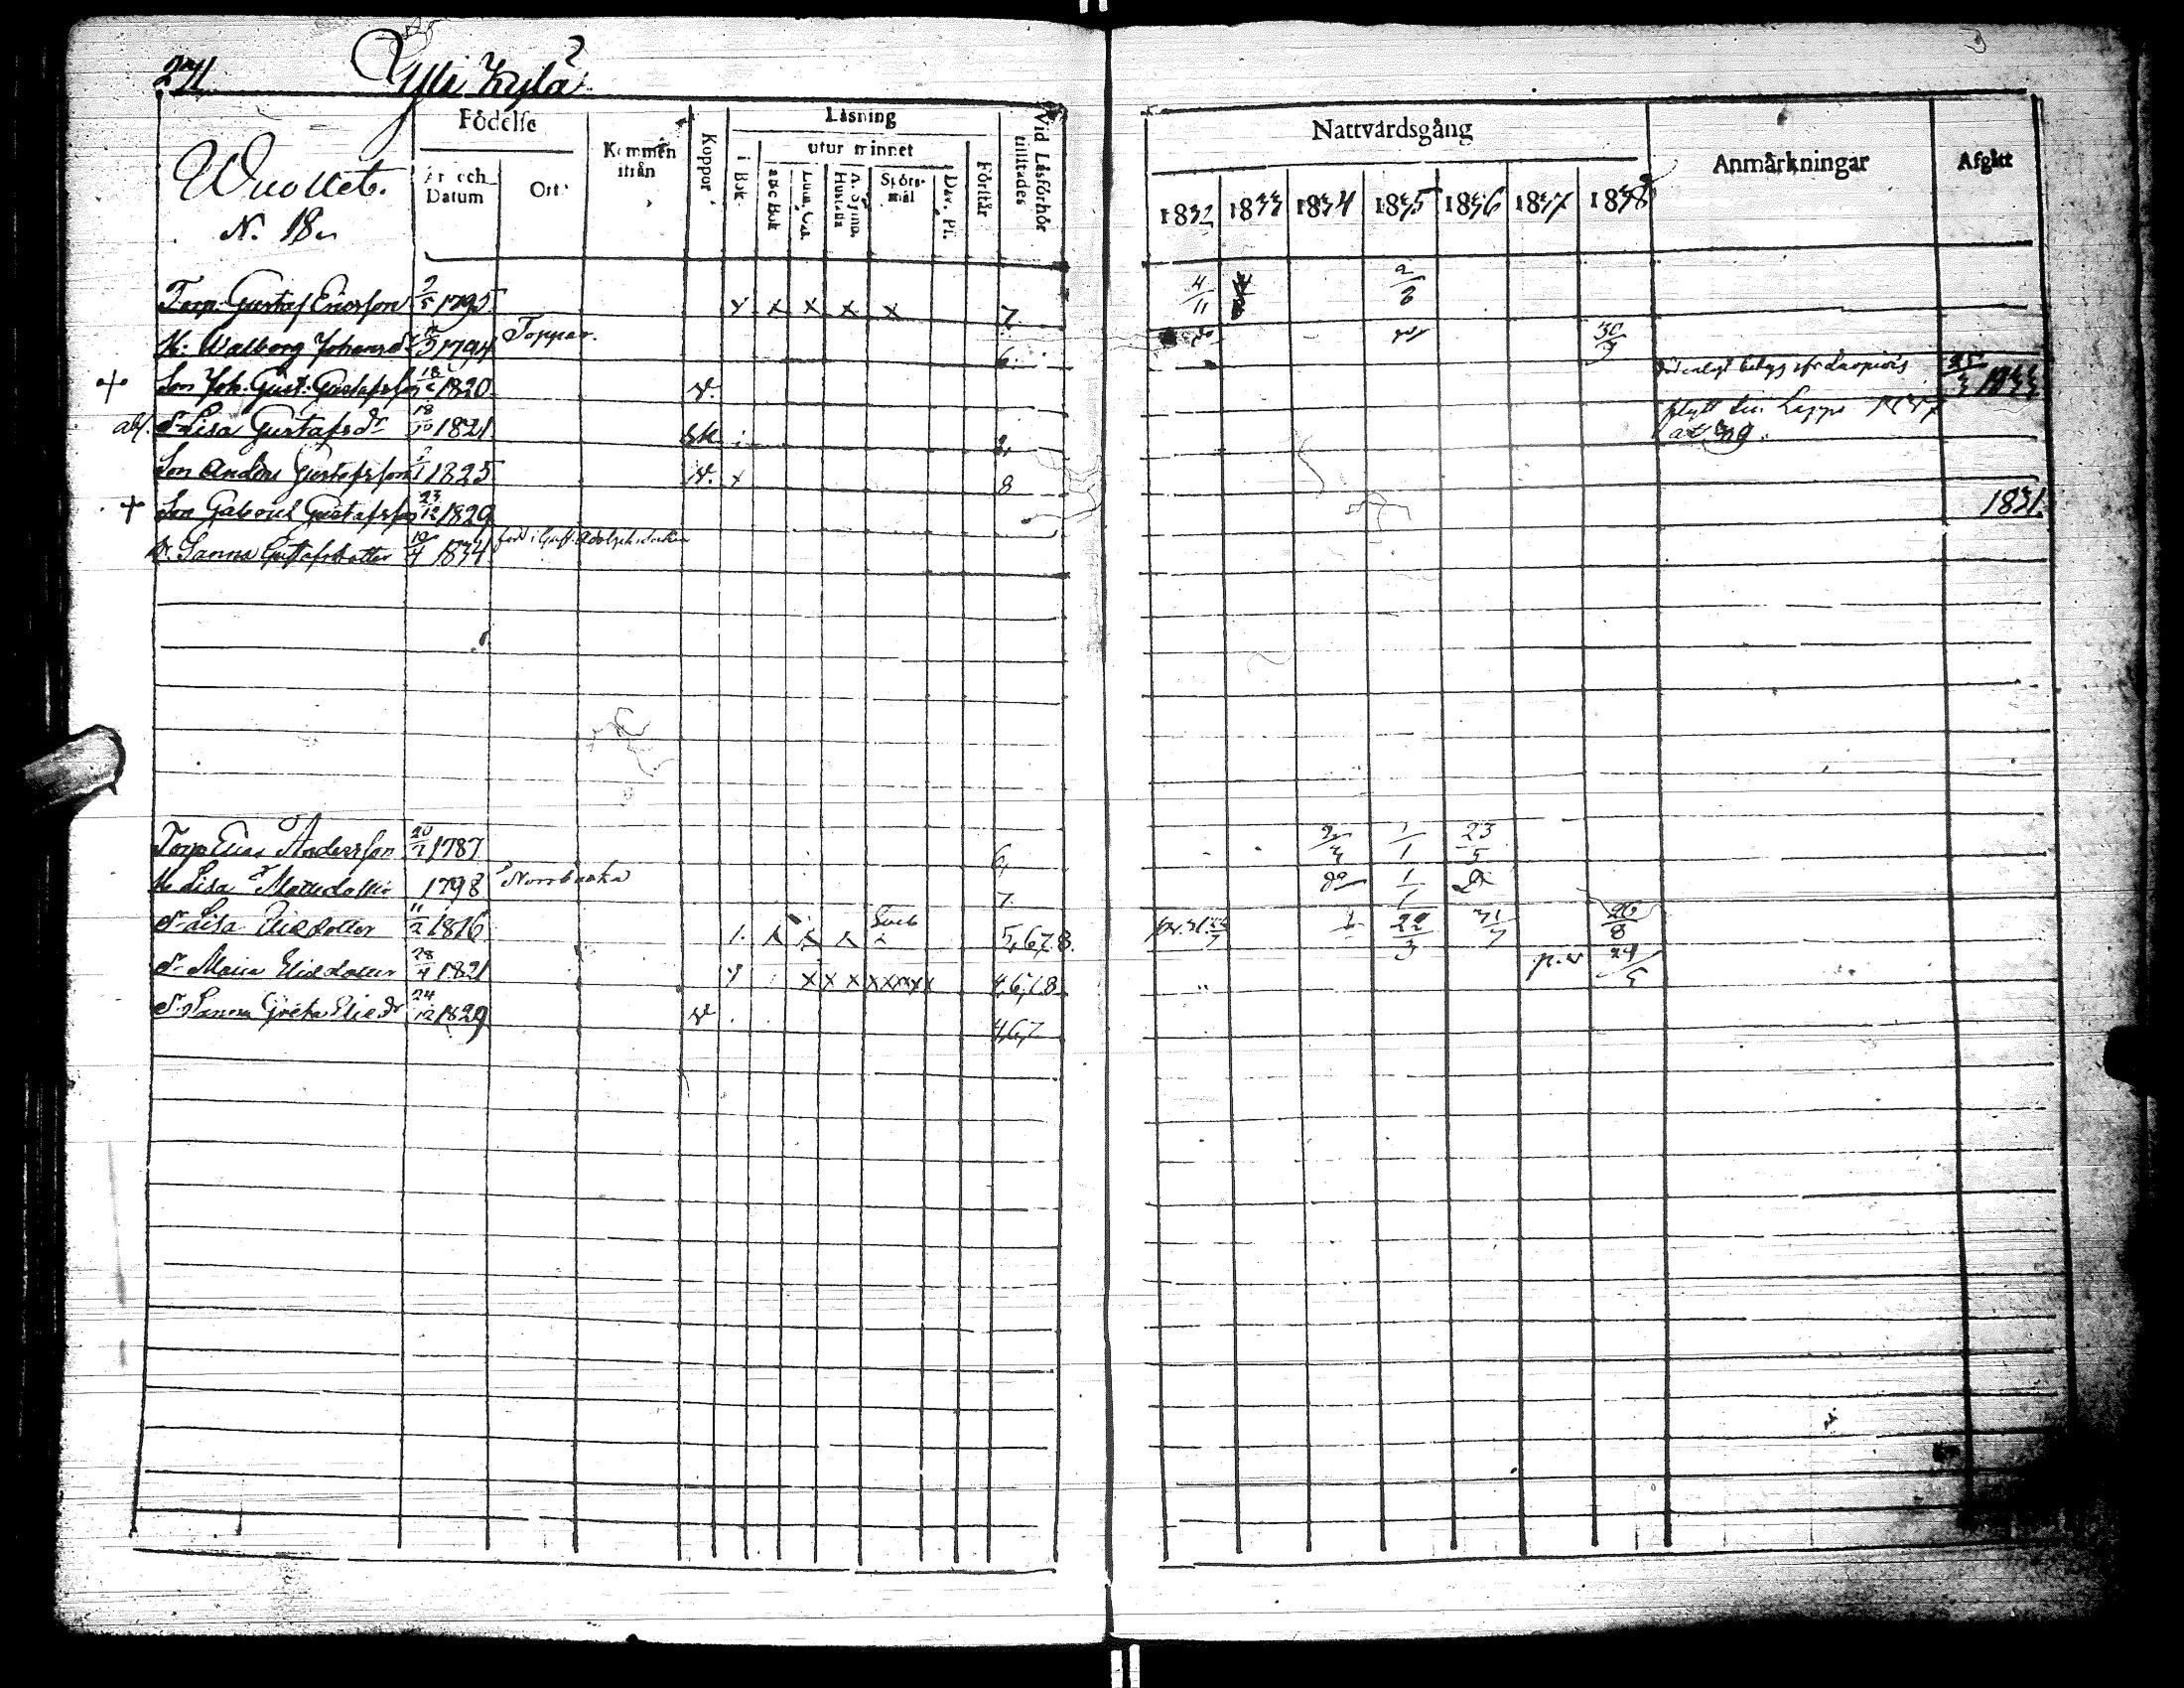 271.
Yli Kylä
Wuollet.
N. 18.
Födelse
År och Datum
Ort.
Kommen ifrån
Koppor
Läsning
i Bok.
utur minnet
abc Bok
Luth. Cat.
A. Symb. Hustafla
Spörsmål
Dav. Ps.
Förstår
Vid Läsförhör tillstades
Nattvardsgång
1832 1833 1834 1835 1836 1837 1838
Anmärkningar
Afgått
Torp. Gustaf Ericsson 2/5 1795. x x x x x 7. 4/11 2/8
H: Walborg Johansdr 1794 Toppar. 6. do 30/7
+ Son Joh. Gust. Gustafsson 18/2 1820. v. 25/3 1833
abs. Dr Lisa Gustafsdr 18/10 1821. sk. 2, flytt till Lappo 1837
Son Anders Gustafsson 1825 v. x 8
+ Son Gabriel Gustafsson 23/12 1829 1831.
Dr. Sanna Gustafsdotter 19/4 1834. född i Gust. Adolphs socken
Torp Elias Andersson 20/2 1787 6, 2/3 1/1 23/5
H. Lisa Mattsdotter 1798 Norrbacka 7. do 1/1 do
Dr Lisa Eliedotter 11/2 1816 5,6,7,8. 22/3 31/7 26/8
Dr Maria Eliedotter 28/4 1821 x x x x x x x x 4,6,7,8. p.v. 24/5
Dr Sanna Greta Eliedr 24/12 1829 v 4,6,7